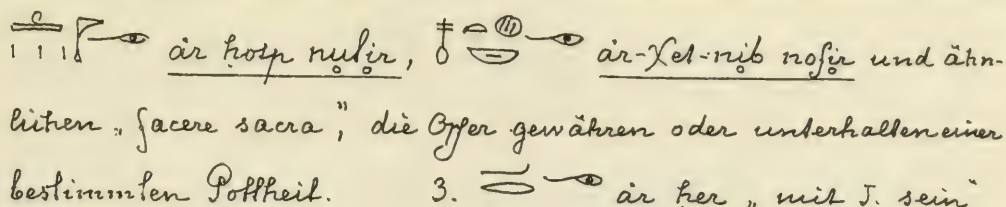 ȧr ḥotp nu̥ti̥r, ȧr-χet-ni̥b nofi̥r und ähn-
lichen „facere sacra”, die Opfer gewähren oder unterhalten einer
bestimmten Gottheit. 3. ȧr ḥer „mit J. sein